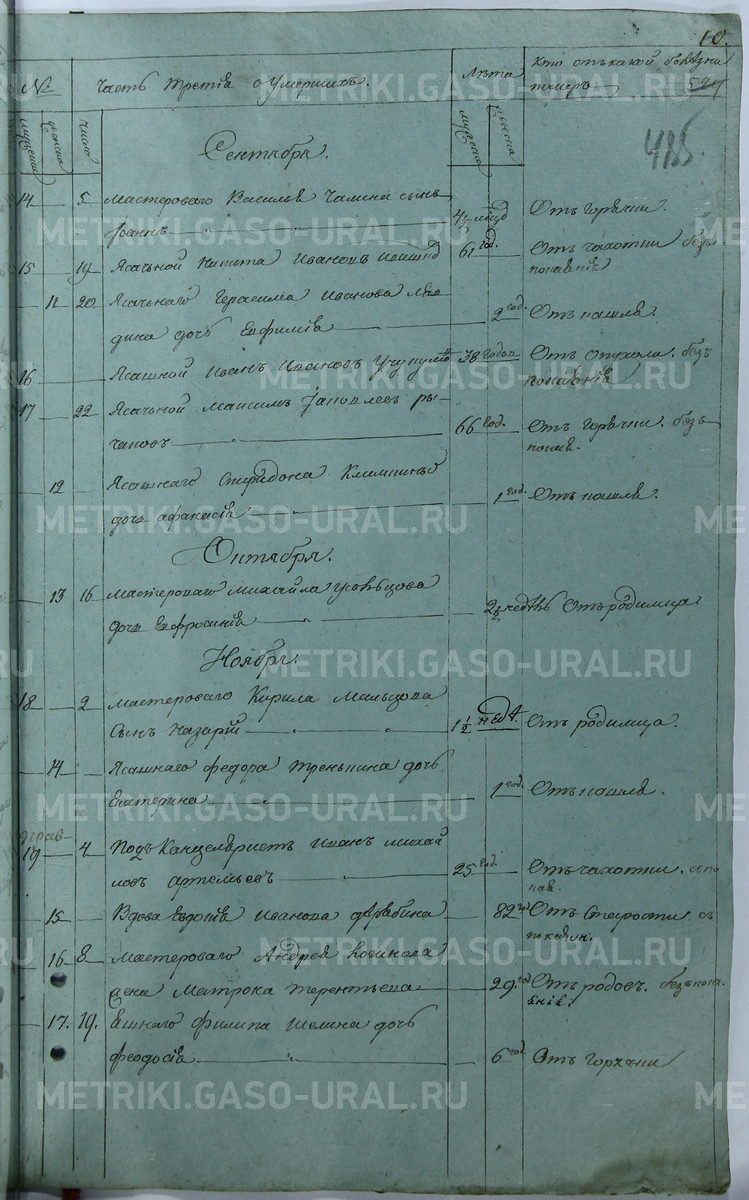 10.
№ Часть третія о Умершихъ. Лѣта Кто отъ какой болѣзни
умеръ
мужеска женска число мужеска женска
485
Сентября.
14 5 Мастероваго Василья сынъ
Іоаннъ Отъ горячки.
15 19 Ясачной Никита Ивановъ 61 год. Отъ чахотки безъ
покаянія
11 20 Ясачнаго Герасима Иванова
дочь Евфимія 2 год. Отъ кашля.
16 Ясашной Иванъ Ивановъ 38 годов Отъ безъ
покаянія
17 22 Ясачной Максимъ Яковлевъ Ры-
чковъ 66 год. Отъ горячки. безъ
покая.
12 Ясашнаго Спиридона
дочь Афанасія 1 год. Отъ кашля.
Октября.
13 16 Мастероваго Михайла
дочь Евфросинія Отъ родимца
Ноября.
18 2 Мастероваго Кирила Мальцова
Сынъ Назарій 1½ нед. Отъ родимца.
14 Ясашнаго Федора Тренькина дочь
Екатерина 1 год. Отъ кашля.
19 4 Подъ Канцеляристъ Иванъ Михай
ловъ Артемьевъ 25 год. Отъ чахотки. съ по
кая.
15 Вдова Евдокія Иванова 82 год Отъ Старости. съ
покаян.
16 8 Мастероваго Андрея
жена Матрона Терентьева 29 год Отъ родовъ. безъ пока
янія.
17. 19. Филипа дочь
Феодосія 6 год Отъ горячки
METRIKI.GASO-URAL.RU